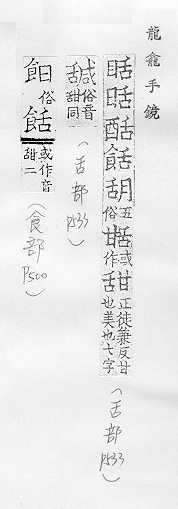 龍龕手鏡
餂五俗甛或作甜正徒兼反甘也美也七字
(舌部 P533)
俗音甜同
(舌部 P533)
俗餂或作音甜二
(食部 P500)